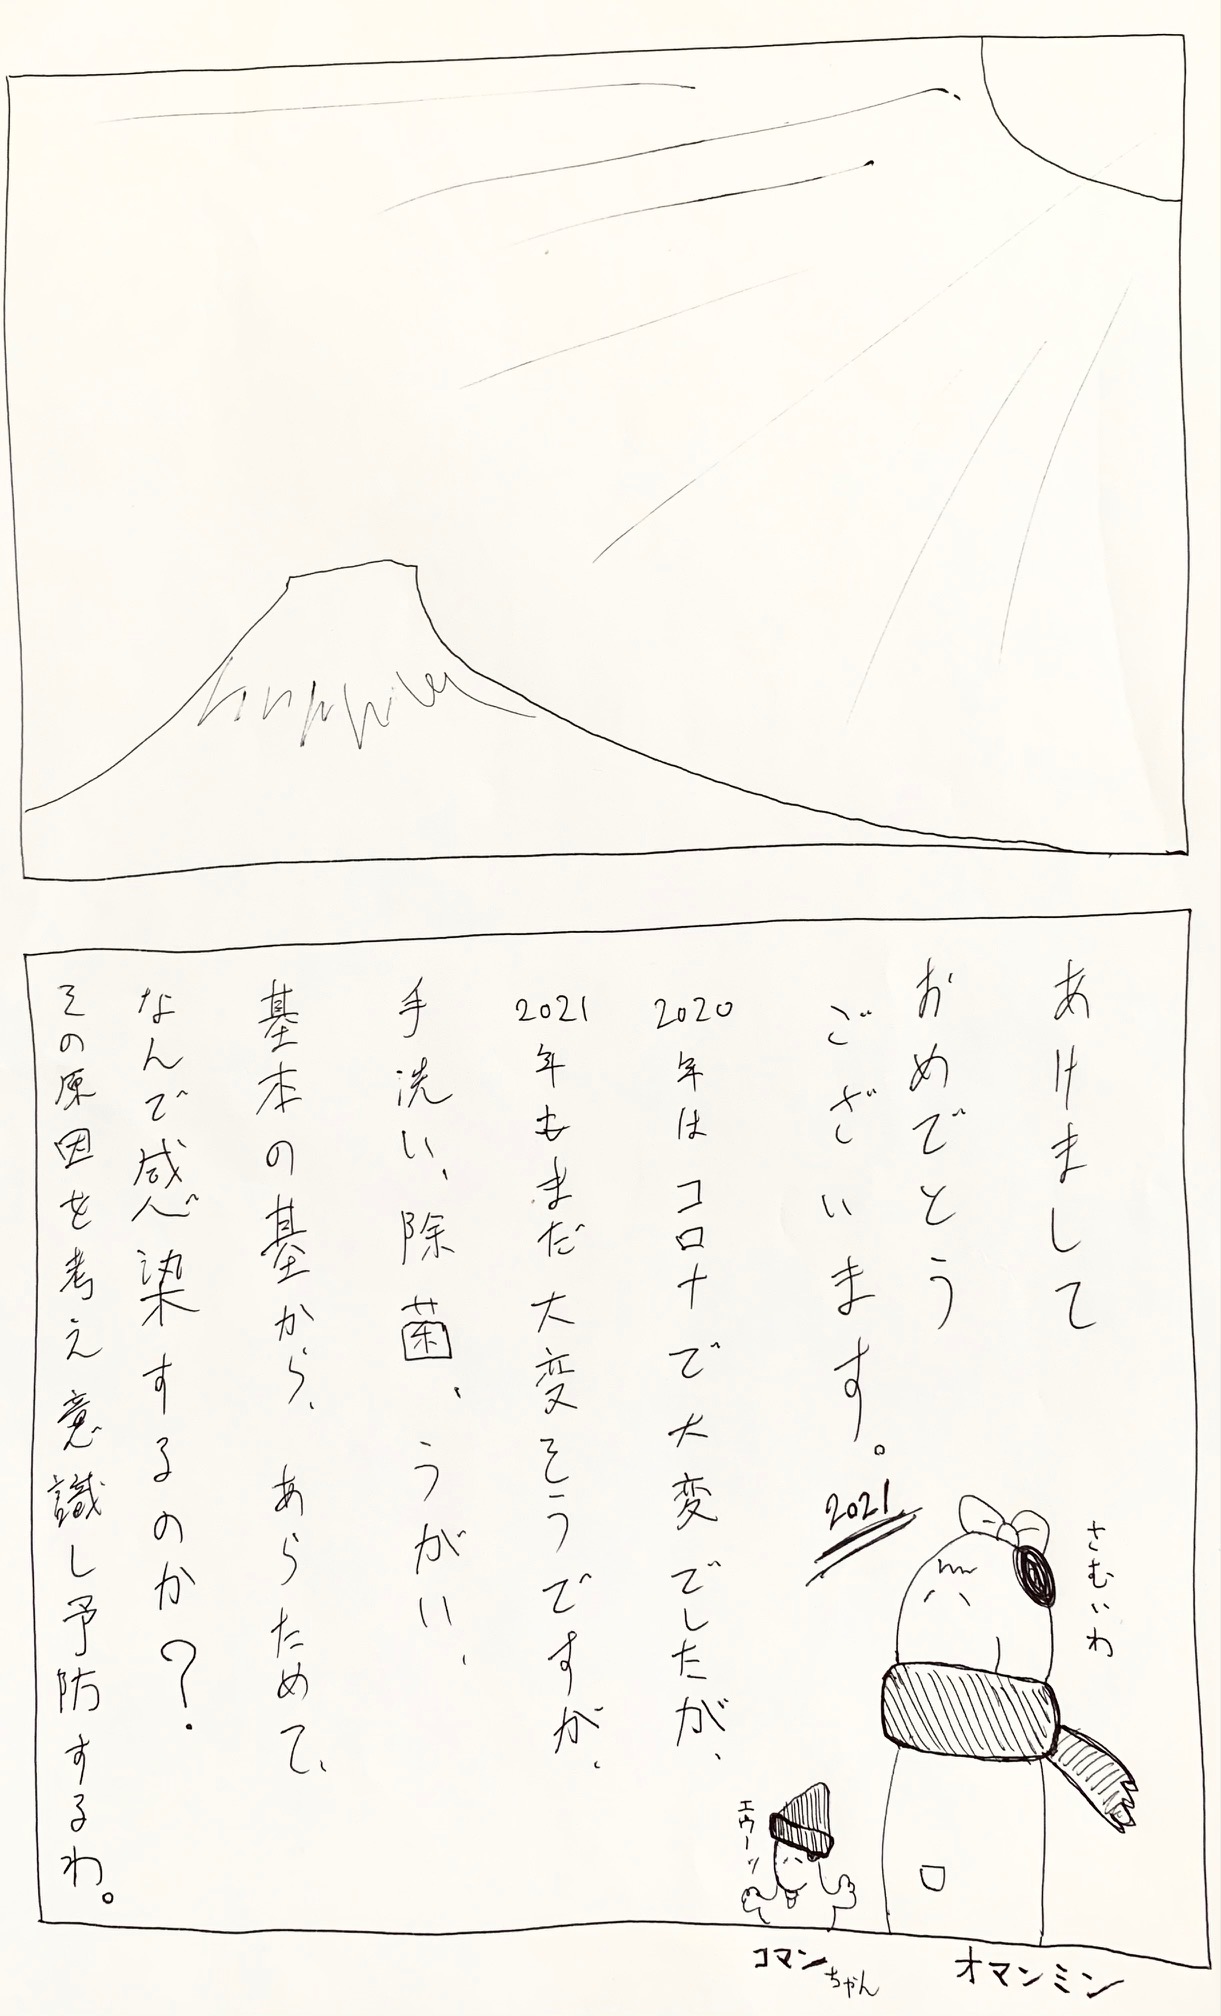 あけまして
おめでとう
ございます。
2020年はコロナで大変でしたが、
2021年もまだ大変そうですが、
手洗い、除菌、うがい、
基本の基から、あらためて、
なんで感染するのか?
その原因を考え意識し予防するわ。
2021
さむいわ
エウーッ
オマンミン
コマンちゃん